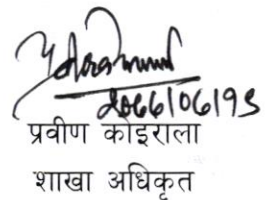 2066/06/19
प्रवीण कोइराला
शाखा अधिकृत